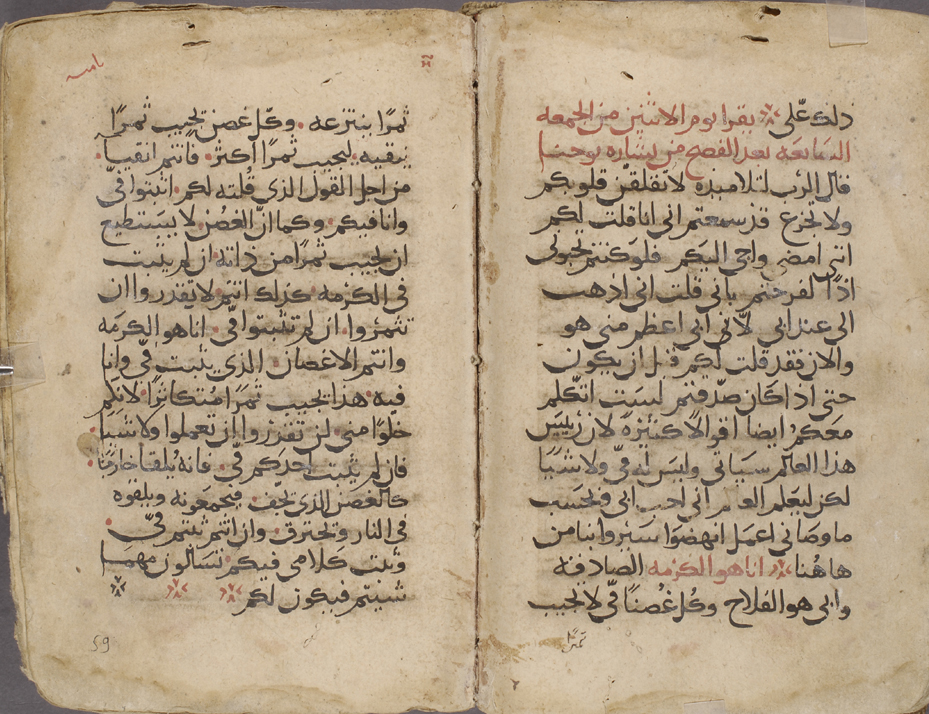 ذلك عني يقرا يوم الاثنين من الجمعه
السابعة بعد الفصح من بشاره يوحنا
قال الرب لتلاميذه لا تقلقن قلوبكم
ولا تجزع قد سمعتم اني انا قلت لكم
انني امضي واجي اليكم فلو كنتم تحبوني
اذًا لفرحتم باني قلت اني اذهب
الى عند ابي لاني ابي اعظم مني هو
والان فقد قلت لكم قبل ان يكون
حتى اذا كان صدقتم لست اتكلم
معكم ايضا اقوالا كثيرة لان رئيس
هذا العالم سياتي وليس له في ولا شيا
لكن ليعلم العالم اني احب ابي وبحسب
ما وصاني اعمل انهضوا سيروا بنا من
هاهنا انا هو الكرمه الصادقة
وابي هو الفلاح وكل غصنا في لا يجيب
ثمرًا
ثمرًا ينتزعه وكل غصن يجيب ثمرًا
ينقيه ليجيب ثمرًا اكثر فانتم انقيا
من اجل القول الذي قلته لكم اثبتوا في
وانا فيكم وكما ان الغصن لا يستطيع
ان يجيب ثمرًا من ذاته ان لم يثبت
في الكرمه كذلك انتم لا تقدروا ان
تثمروا ان لم تثبتوا في انا هو الكرمه
وانتم الاغصان الذي يثبت في وانا
فيه هذا يجيب ثمرًا متكاثرًا لانكم
خلوًا مني لن تقدروا ان تعملوا ولا شيا
فان لم يثبت احدكم في فانه يلقا خارجًا
كالغصن الذي يجف فيجمعونه ويلقوه
في النار وتحترق وان انتم ثبتم في
وثبت كلامي فيكم تسالون مهما
شيتم فيكون لكم
59